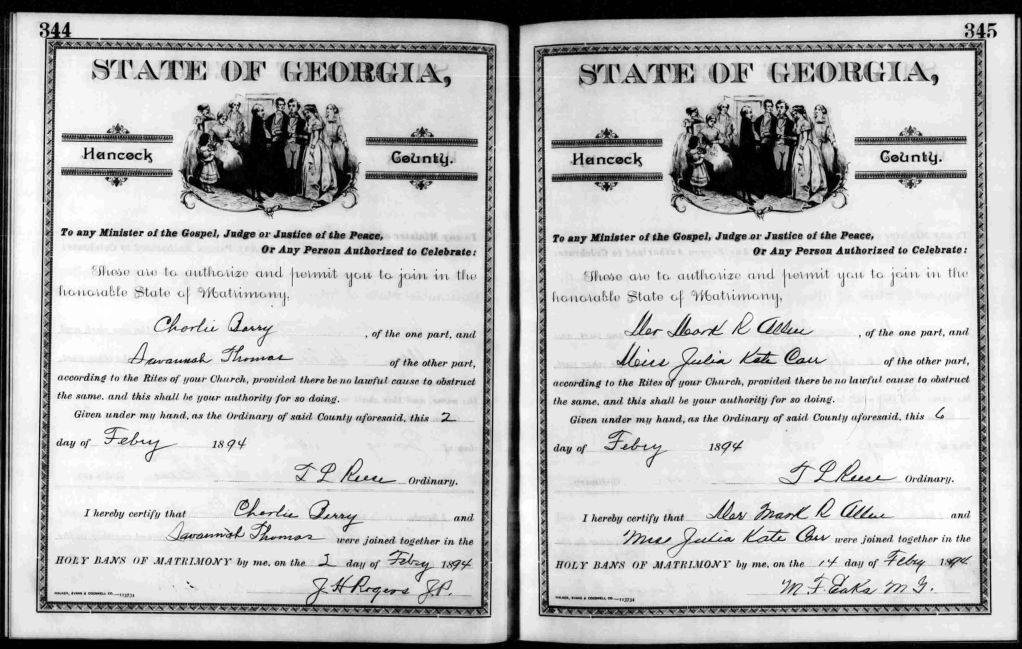 344
STATE OF GEORGIA,
Hancock County.
To any Minister of the Gospel, Judge or Justice of the Peace,
Or Any Person Authorized to Celebrate:
These are to authorize and permit you to join in the
honorable State of Matrimony,
Charlie Berry, of the one part, and
Savannah Thomas of the other part,
according to the Rites of your Church, provided there be no lawful cause to obstruct
the same, and this shall be your authority for so doing.
Given under my hand, as the Ordinary of said County aforesaid, this 2
day of Febry 1894
T L Reese Ordinary.
I hereby certify that Charlie Berry and
Savannah Thomas were joined together in the
HOLY BANS OF MATRIMONY by me, on the day of Febry 1894
J H Rogers J.P.
WALKER, EVANS & COGSWELL CO.—113734
345
STATE OF GEORGIA,
Hancock County.
To any Minister of the Gospel, Judge or Justice of the Peace,
Or Any Person Authorized to Celebrate:
These are to authorize and permit you to join in the
honorable State of Matrimony,
Mark R Allen, of the one part, and
Miss Julia Kate Carr of the other part,
according to the Rites of your Church, provided there be no lawful cause to obstruct
the same, and this shall be your authority for so doing.
Given under my hand, as the Ordinary of said County aforesaid, this 6
day of Febry 1894
T L Reese Ordinary.
I hereby certify that Mark R Allen and
Miss Julia Kate Carr were joined together in the
HOLY BANS OF MATRIMONY by me, on the 14 day of Febry 1894
M. F. M. G.
WALKER, EVANS & COGSWELL CO.—113734